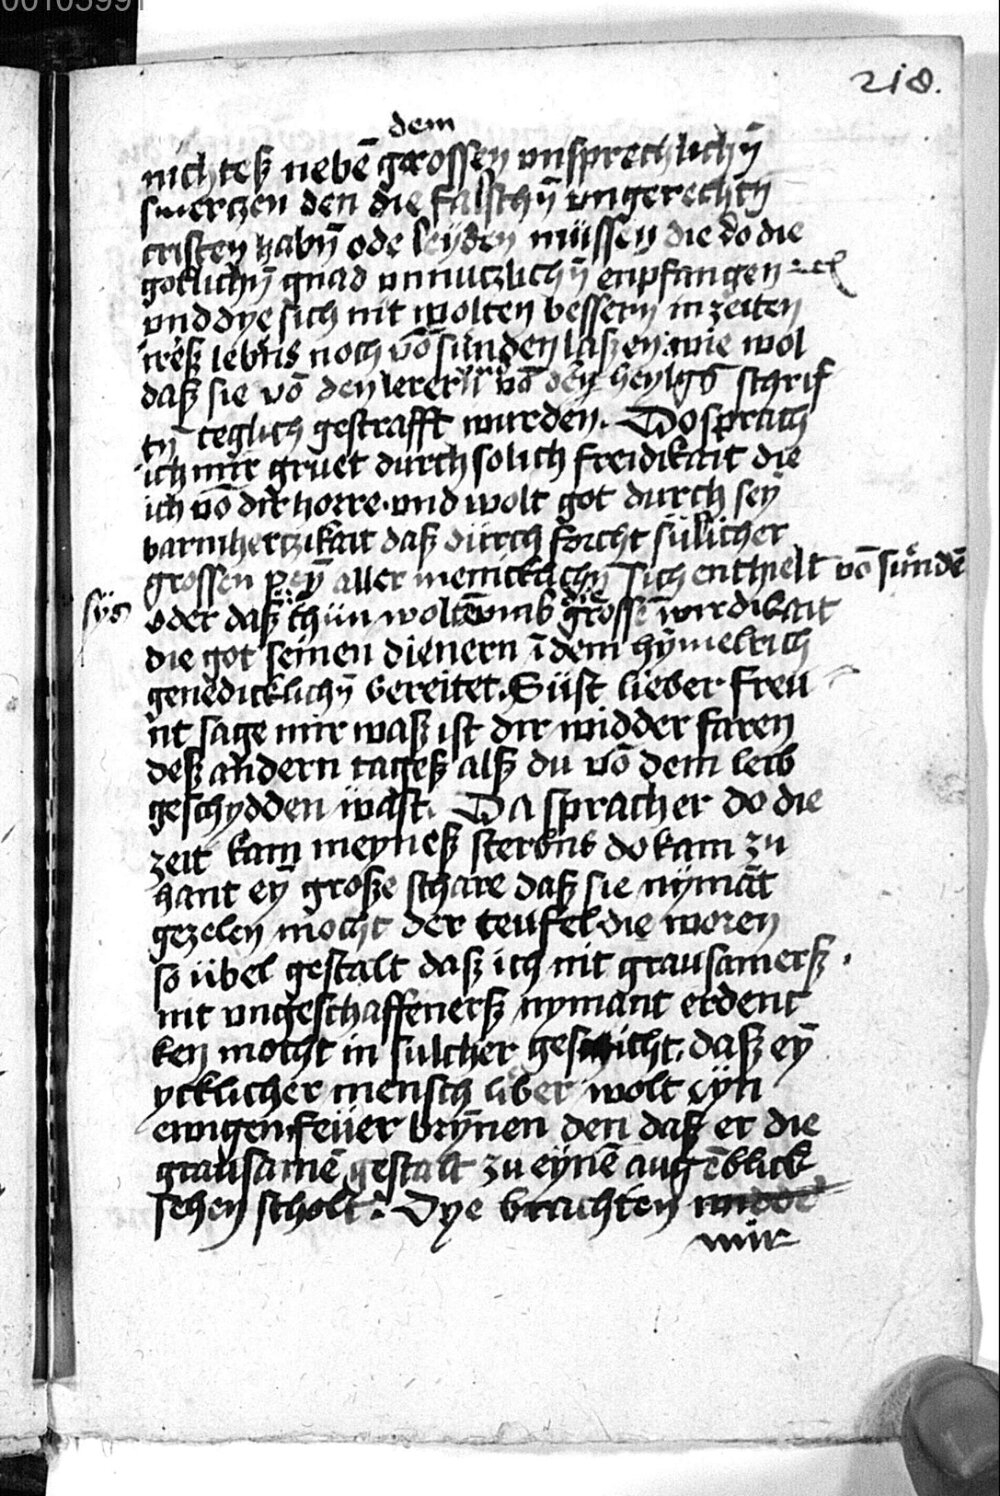 00103991
218.
dem
nichteß nebē grossen vnsprechlichn̄
smerczen den die falschn̄ vngerechtn̄
cristen habn̄ ode leÿden müssen die do die
gotlichn̄ gnad vnnutzlichn̄ enpfangen
vnd dye sich nit wolten bessern in zeiten
ireß lebns noch võ sunden laszen wie wol
daß sie võ den lerern võ der heylgn̄ schrif
tn̄ teglich gestrafft wurden. Do sprach
ich mir gruet durch solich freidikait die
ich võ dir horre. vnd wolt got durch seÿ
barmhertzikait daß dürch forcht sülicher
grossen peÿ aller menicklichn̄ sich enthielt võ sündē
oder daß thün woltē vmb die grossē wirdikait
die got seinen dienern ī dem hÿmelrich
genedicklichn̄ bereitet. Süst lieber freu
nt sage mir waß ist dir widder faren
deß andern tageß alß du võ dem leib
geschydden wast. Da sprach er do die
zeit kam meyneß sterbns do kam zu
hant eÿ große schare daß sie nÿmāt
gezelen mocht der teufel die woren
so übel gestalt daß ich nit grausamerß.
nit vngeschaffenerß nymant erdenc
ken mocht in sulcher gesicht. daß eÿ
ycklicher mensch liber wolt eÿn
ewigen feüer brÿnen den daß er die
grausamē gestalt zu eÿnē augēblick
sehen scholt. Dye brachten
mir